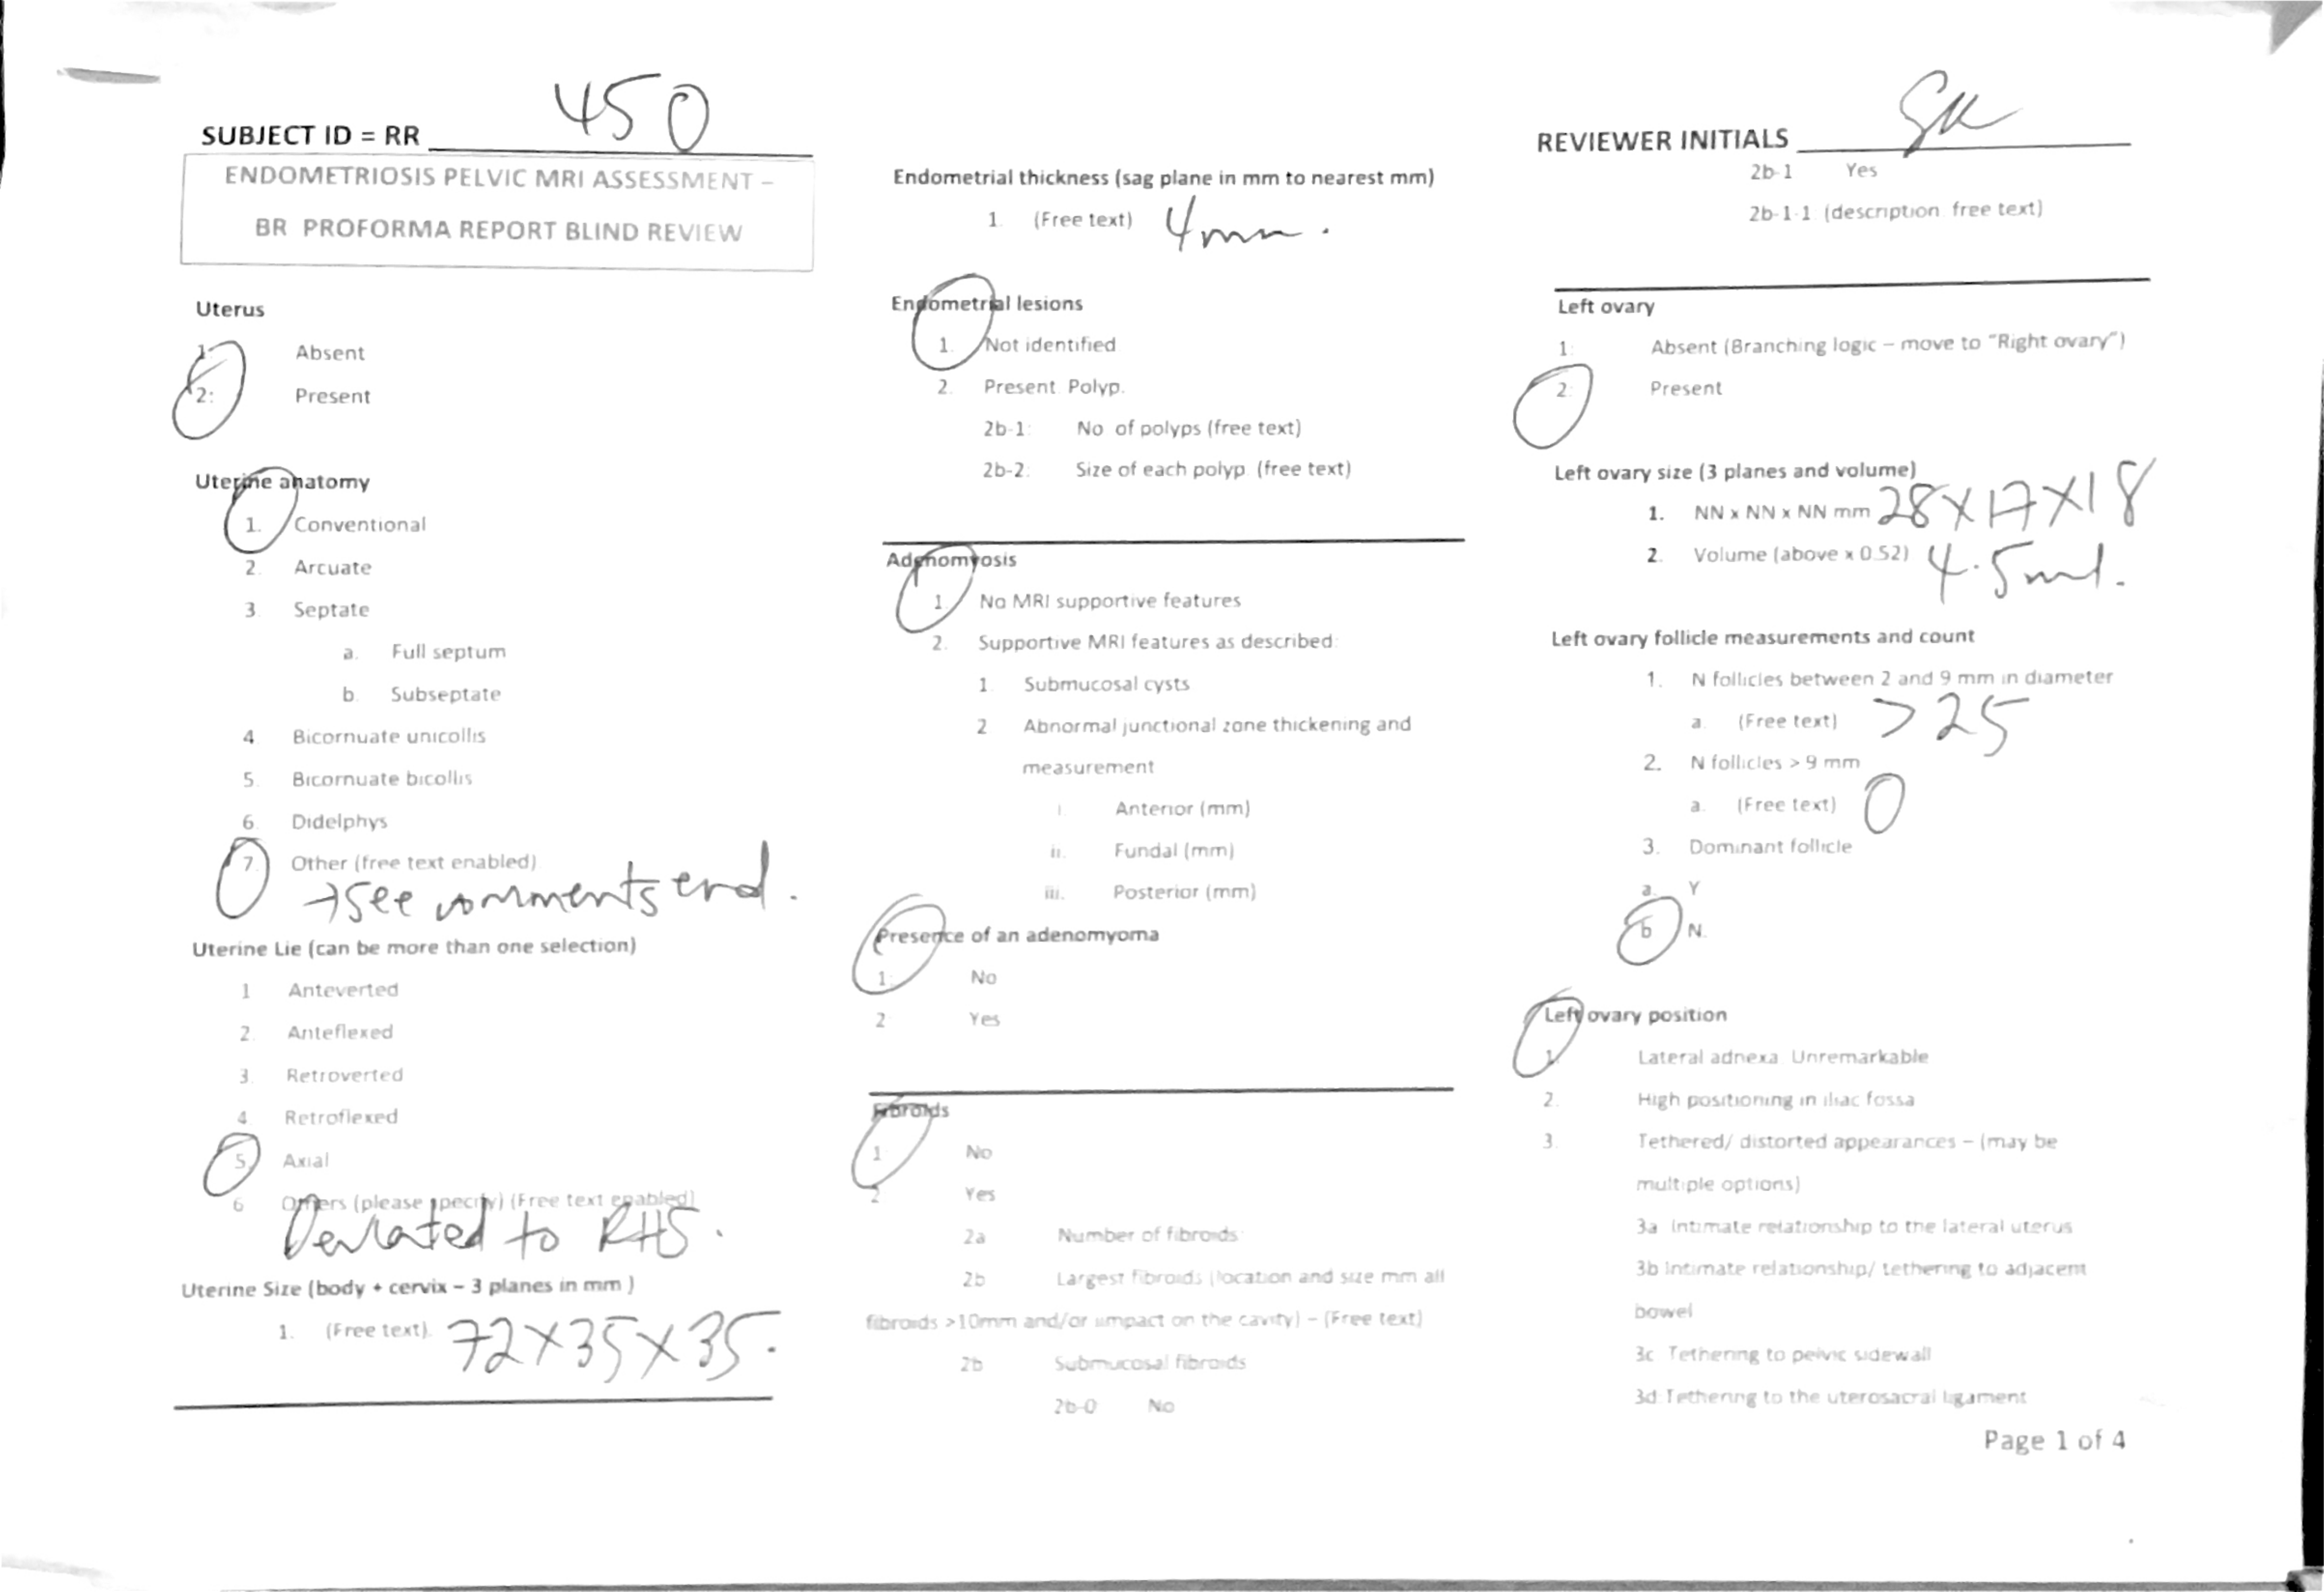 SUBJECT ID = RR 450
ENDOMETRIOSIS PELVIC MRI ASSESSMENT –
BR PROFORMA REPORT BLIND REVIEW
Uterus
1: Absent
2: Present
Uterine anatomy
1. Conventional
2. Arcuate
3. Septate
a. Full septum
b. Subseptate
4 Bicornuate unicollis
5. Bicornuate bicollis
6. Didelphys
7. Other (free text enabled)
→ see comments end.
Uterine Lie (can be more than one selection)
1 Anteverted
2. Anteflexed
3. Retroverted
4. Retroflexed
5. Axial
6 Others (please specify) (Free text enabled)
Deviated to RHS.
Uterine Size (body + cervix – 3 planes in mm )
1. (Free text). 72 x 35 x 35.
Endometrial thickness (sag plane in mm to nearest mm)
1. (Free text) 4mm.
Endometrial lesions
1. Not identified
2. Present Polyp.
2b-1: No of polyps (free text)
2b-2: Size of each polyp (free text)
Adenomyosis
1. No MRI supportive features
2. Supportive MRI features as described:
1. Submucosal cysts
2 Abnormal junctional zone thickening and
measurement
i. Anterior (mm)
ii. Fundal (mm)
iii. Posterior (mm)
Presence of an adenomyoma
1: No
2 Yes
Fibroids
1 No
2 Yes
2a Number of fibroids
2b Largest fibroids (location and size mm all
fibroids >10mm and/or impact on the cavity) – (Free text)
2b Submucosal fibroids
2b-0 No
REVIEWER INITIALS
2b-1 Yes
2b-1-1 (description free text)
Left ovary
1: Absent (Branching logic – move to "Right ovary")
2: Present
Left ovary size (3 planes and volume)
1. NN x NN x NN mm 28 x 17 x 18
2. Volume (above x 0.52) 4.5ml.
Left ovary follicle measurements and count
1. N follicles between 2 and 9 mm in diameter
a. (Free text) >25
2. N follicles > 9 mm
a. (Free text) 0
3. Dominant follicle
a. Y
b N.
Left ovary position
1. Lateral adnexa Unremarkable
2. High positioning in iliac fossa
3. Tethered/ distorted appearances – (may be
multiple options)
3a Intimate relationship to the lateral uterus
3b Intimate relationship/ tethering to adjacent
bowel
3c Tethering to pelvic sidewall
3d Tethering to the uterosacral ligament
Page 1 of 4